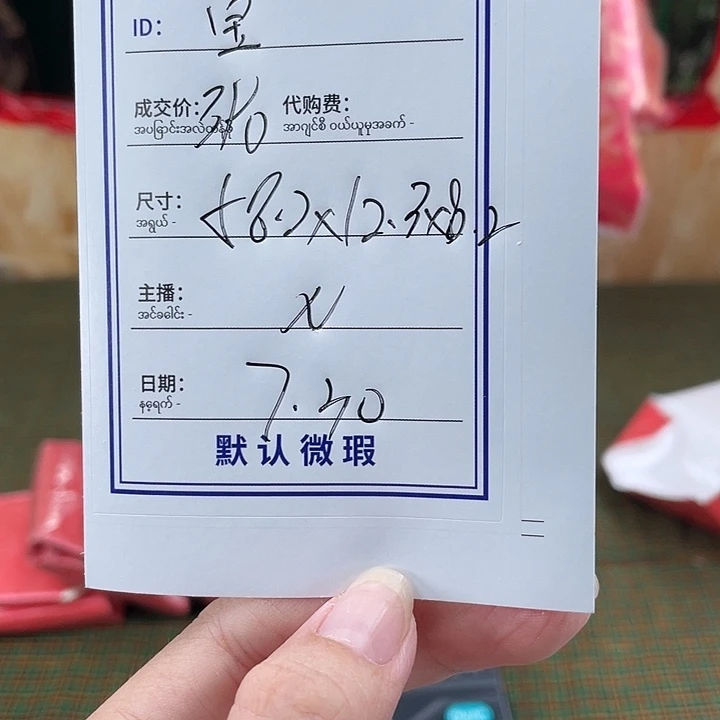 ID: 里
成交价: 代购费:
အပြောင်းအလဲတန်ဖိုး အာဂျင်စီ ဝယ်ယူမှုအခက် -
尺寸: 58.2x12.3x8.2
အရွယ် -
主播: X
အင်ခေါင်း -
日期: 7.30
နေ့ရက် -
默认微瑕